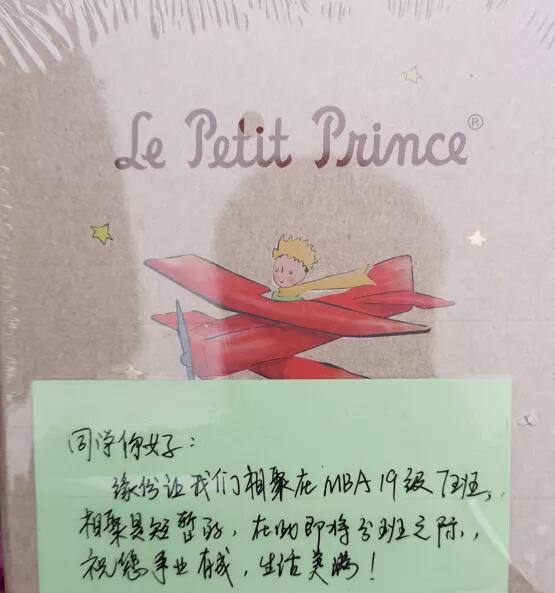 Le Petit Prince®
同学你好：
缘份让我们相聚在MBA 19级7班，
相聚是短暂的，在此即将分班之际，
祝您事业有成，生活美满！